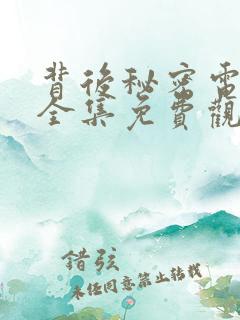 背後秘密電
全集免費觀
錯弦
未經同意禁止轉載